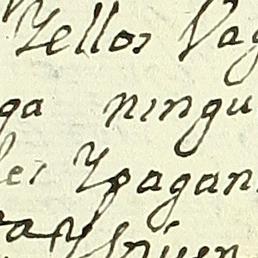 Yellos Vag
ga ningu
les Ypagan